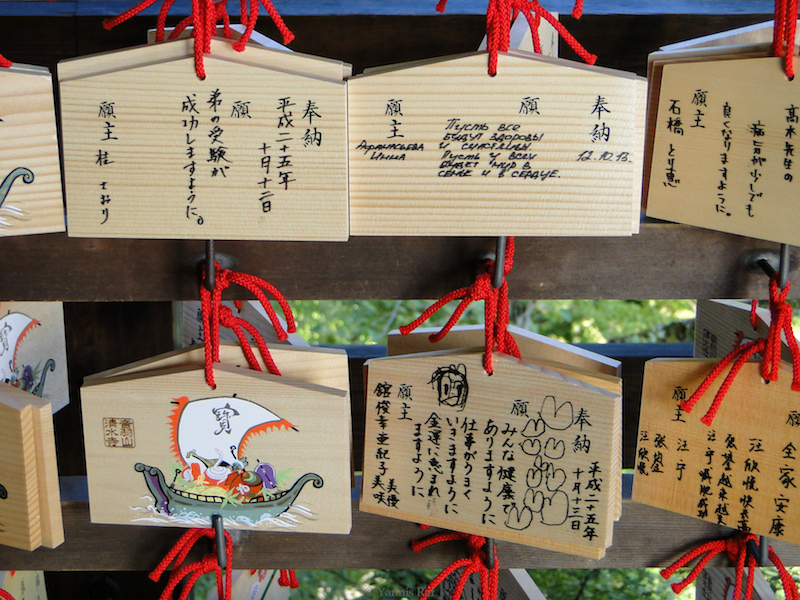 奉納
平成二十五年
十月十二日
願
弟の受験が
成功しますように。
願主 桂
奉納
12.10.13.
願
Пусть все
будут здоровы
и счастливы
Пусть у всех
будет мир в
семье и в сердце.
願主
Афанасьева
Инна
高木先生の
病気が少しでも
良くなりますように。
願主
石橋
寶
音羽山
清水寺
奉納
平成二十五年
十月十三日
願
みんな健康で
ありますように
仕事がうまく
いきますように
金運に恵まれ
ますように
願主
舘 俊幸 亜紀子 美優
美咲
願
全家安康
願主
注宁
注欣悦
© Yannis Rit